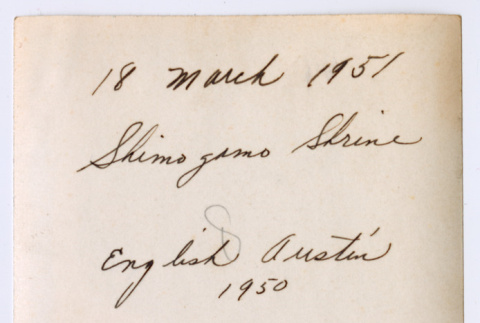 18 March 1951
Shimogamo Shrine
8
English Austin
1950